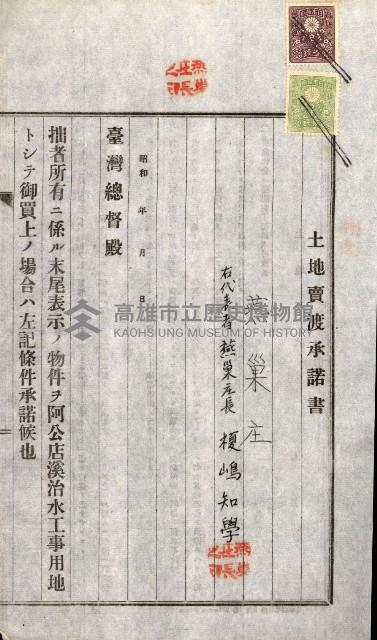 土地賣渡承諾書
燕巢庄
右代表者燕巢庄長 榎嶋知學
昭和 年 月 日
臺灣總督殿
拙者所有ニ係ル末尾表示ノ物件ヲ阿公店溪治水工事用地
トシテ御買上ノ場合ハ左記條件承諾候也
高雄市立歷史博物館
KAOHSIUNG MUSEUM OF HISTORY